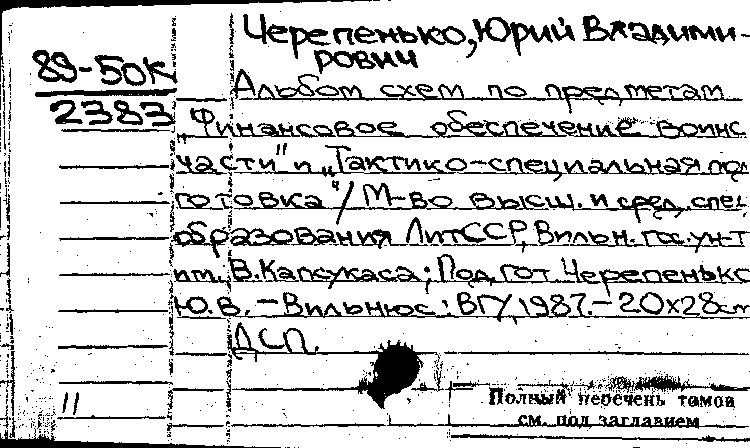 Черепенько, Юрий Владими-
рович
89-50К
2383
Альбом схем по предметам
„Финансовое обеспечение воинс
части" и „Тактико-специальная под
готовка"/М-во высш. и сред. спец
образования ЛитССР, Вильн. гос. ун-т
им. В. Капсукаса; Подгот. Черепенько
Ю.В. – Вильнюс: ВГУ, 1987. – 20х28см
ДСП.
11
Полный перечень томов
см. под заглавием